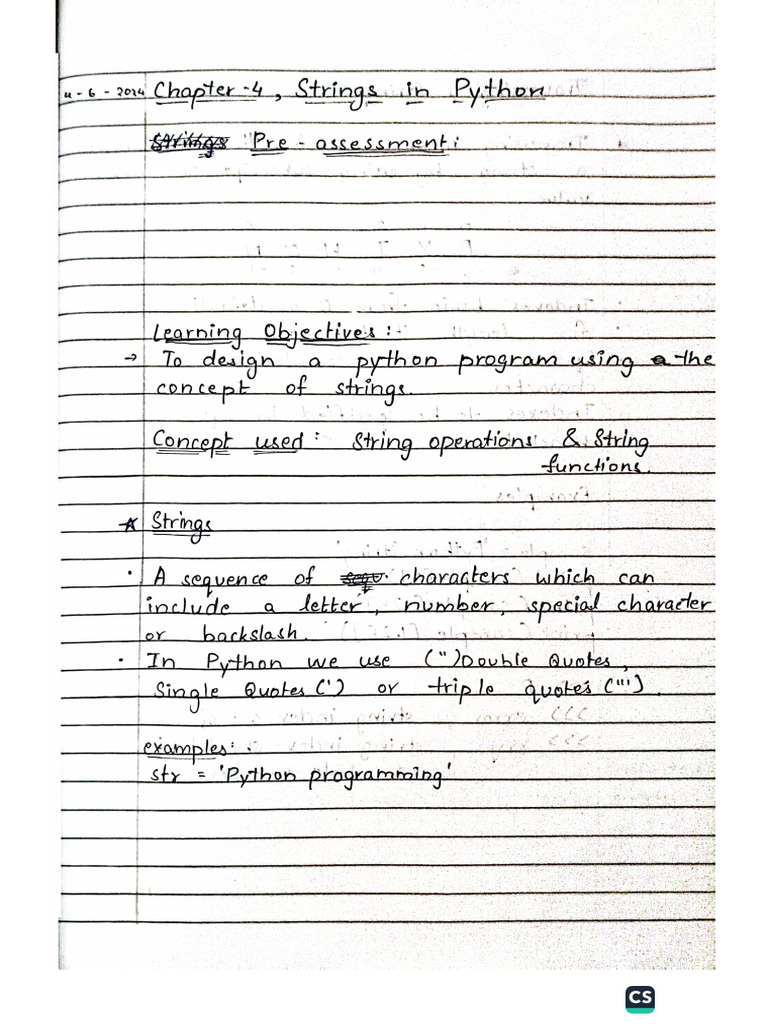 4-6-2024 Chapter-4, Strings in Python
Pre-assessment:
Learning Objectives:-
→ To design a python program using the
concept of strings.
Concept used: String operations & String
functions.
* Strings
• A sequence of characters which can
include a letter, number, special character
or backslash.
• In Python we use (")Double Quotes,
Single Quotes(') or triple quotes (''').
examples:
str = 'Python programming'
CS